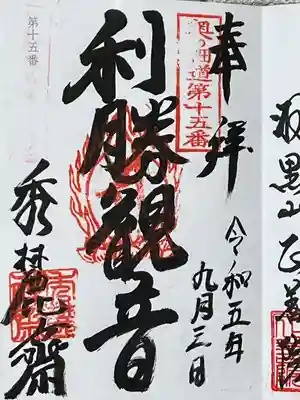 奉拝
奥の細道第十五番
令和五年
九月三日
利勝観音
第十五番
秀麓齋
羽黒山